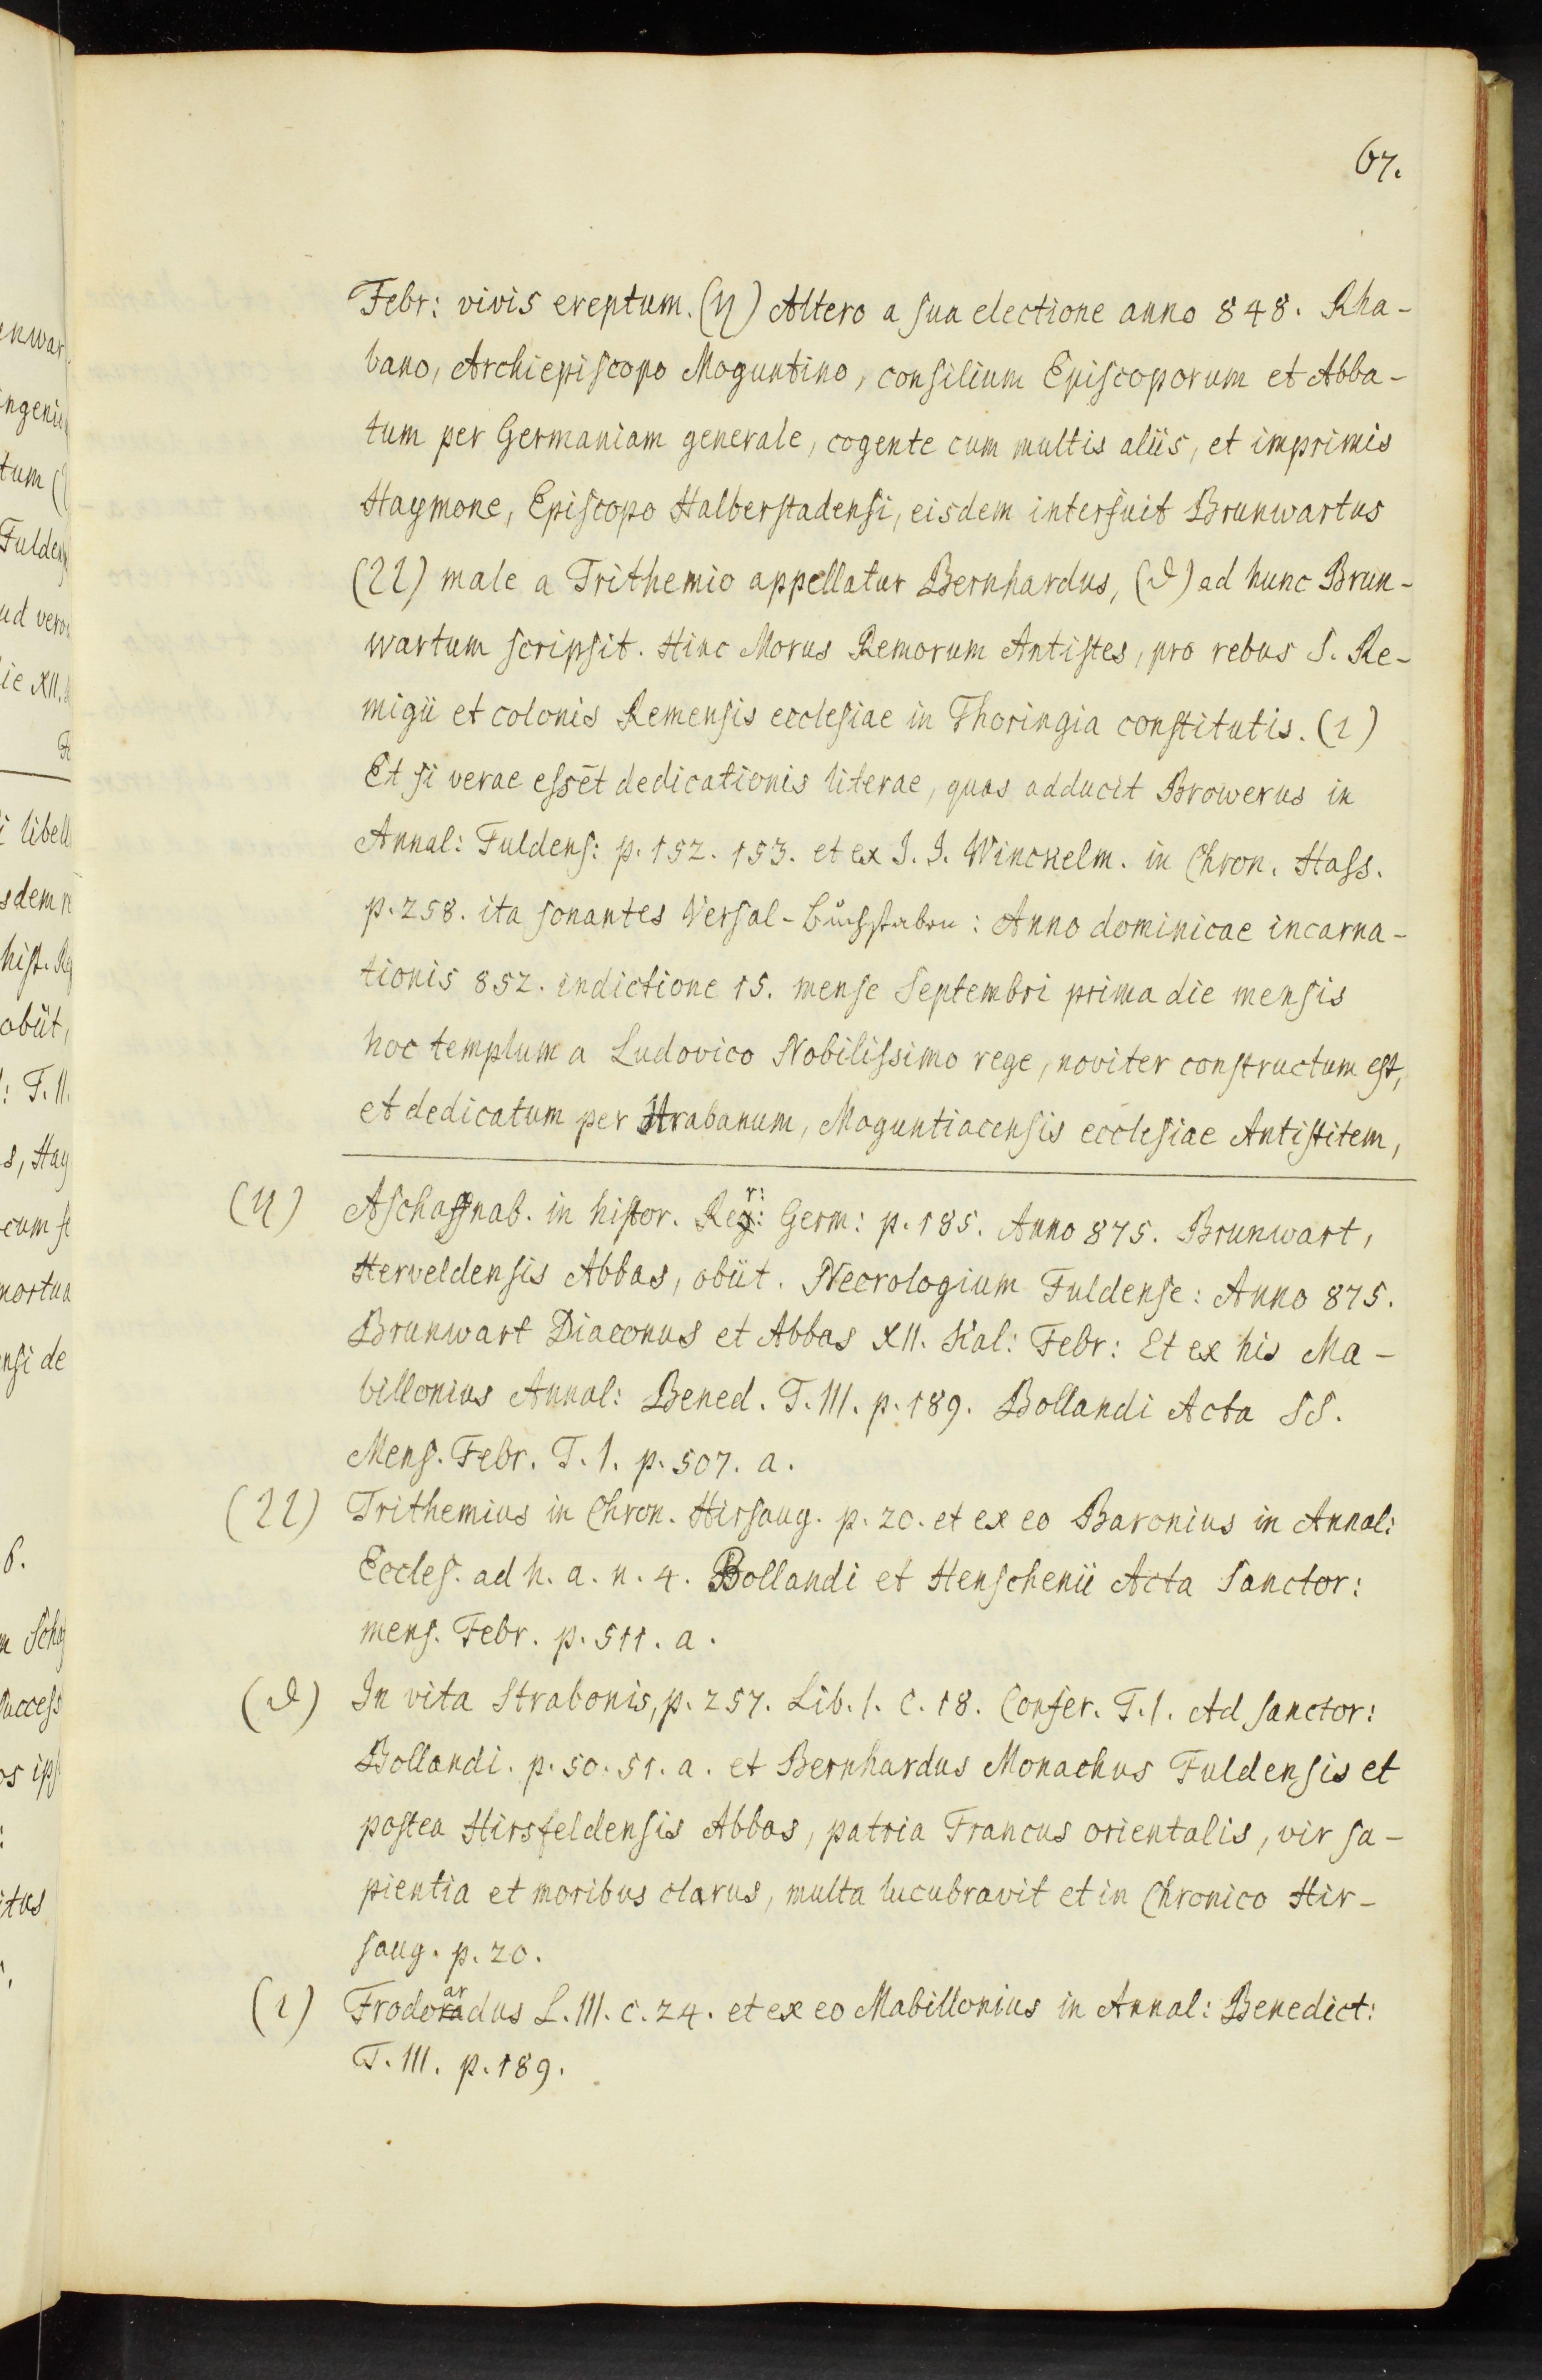 67.
Febr: vivis ereptum. (η) Altero a sua electione anno 848. Rha-
bano, Archiepiscopo Moguntino, consilium Episcoporum et Abba-
tum per Germaniam generale, cogente cum multis aliis, et imprimis
Haymone, Episcopo Halberstadensi, eisdem interfuit Brunwartus
(22) male a Trithemio appellatur Bernhardus, (ϑ) ad hunc Brun-
wartum scripsit. Hinc Morus Remorum Antistes, pro rebus S. Re-
migii et colonis Remensis ecclesiae in Thoringia constitutis. (ι)
Et si verae essēt dedicationis literae, quas adducit Browerus in
Annal: Fuldens: p. 152. 153. et ex J. J. Winckelm. in Chron. Hass.
p. 258. ita sonantes Versal-Buchstaben: Anno dominicae incarna-
tionis 852. indictione 15. mense Septembri prima die mensis
hoc templum a Ludovico Nobilissimo rege, noviter constructum est,
et dedicatum per Hrabanum, Maguntiacensis ecclesiae Antistitem,
(η) Aschaffnab. in histor. Rer: Germ: p. 185. Anno 875. Brunwart,
Herveldensis Abbas, obiit. Necrologium Fuldense: Anno 875.
Brunwart Diaconus et Abbas XII. Kal: Febr: Et ex his Ma-
billonius Annal: Bened. T. III. p. 189. Bollandi Acta SS.
Mens. Febr. T. I. p. 507. a.
(22) Trithemius in Chron. Hirsaug. p. 20. et ex eo Baronius in Annal:
Eccles. ad h. a. n. 4. Bollandi et Henschenii Acta Sanctor:
mens. Febr. p. 511. a.
(ϑ) In vita Strabonis, p. 257. Lib. I. C. 18. Confer. T. I. Ad sanctor:
Bollandi. p. 50. 51. a. et Bernhardus Monachus Fuldensis et
postea Hirsfeldensis Abbas, patria Francus orientalis, vir sa-
pientia et moribus clarus, multa lucubravit et in Chronico Hir-
saug. p. 20.
(ι) Frodoardus L. III. c. 24. et ex eo Mabillonius in Annal: Benedict:
T. III. p. 189.